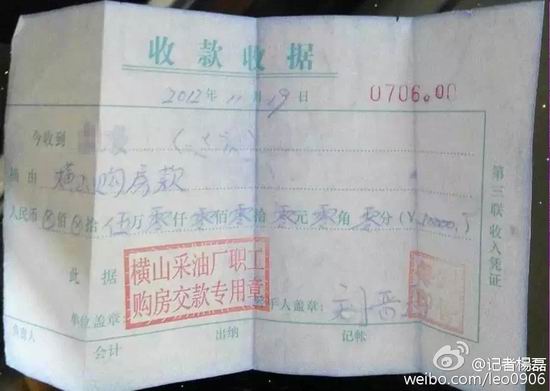 收款收据
2012年11月19日 0706.00
今收到
摘由 横山购房款
人民币⊗佰⊗拾伍万零仟零佰零拾零元零角零分(¥
第三联收入凭证
此据
横山采油厂职工
购房交款专用章
单位盖章: 经手人盖章: 刘晋
负责人 会计 出纳 记帐
@记者杨磊
weibo.com/leo0906